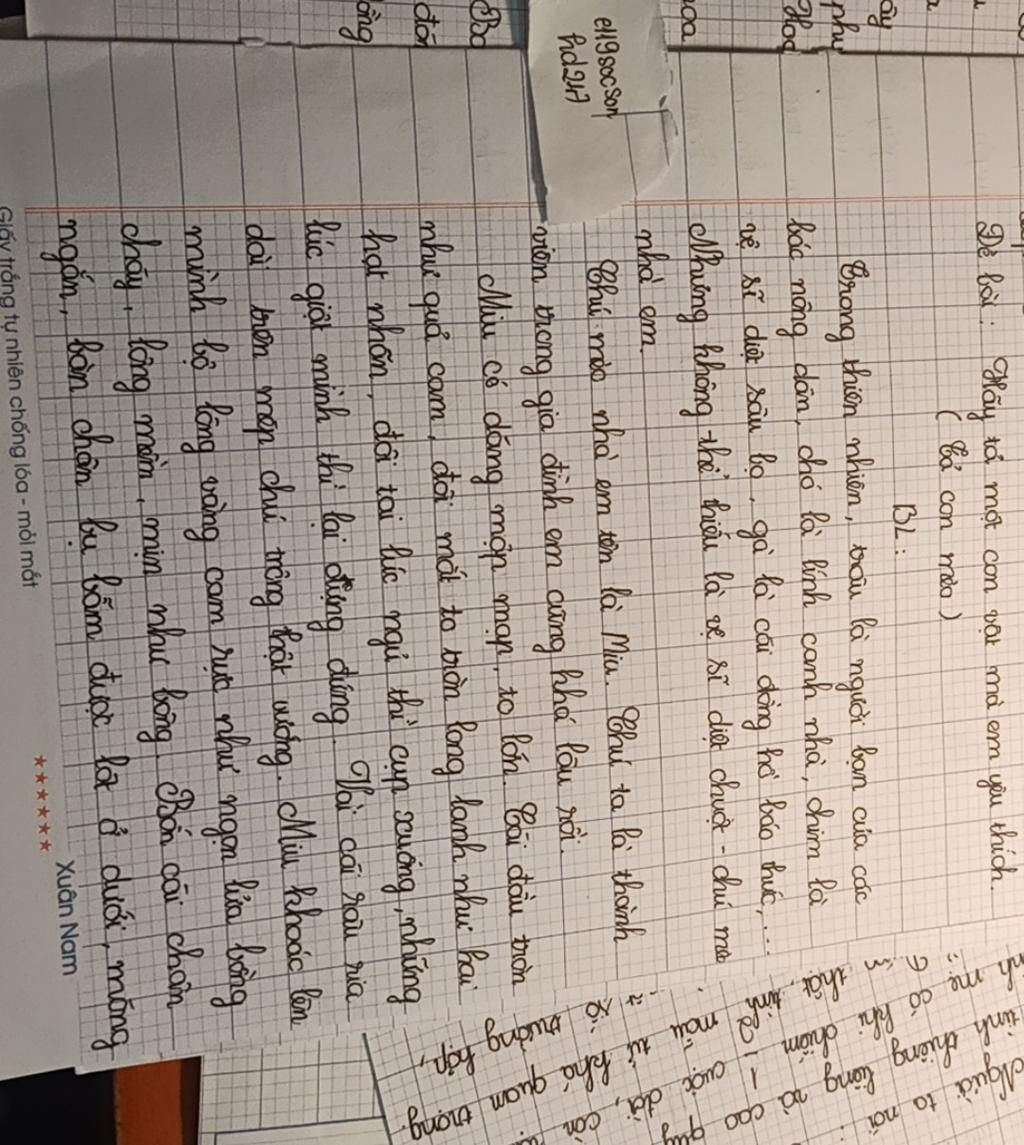 Đề bài: Hãy tả một con vật mà em yêu thích.
(Tả con mèo)
BL:
Trong thiên nhiên, trâu là người bạn của các
bác nông dân, chó là lính canh nhà, chim là
vệ sĩ diệt sâu bọ, gà là cái đồng hồ báo thức,...
Nhưng không thể thiếu là vệ sĩ diệt chuột - chú mèo
nhà em.
Chú mèo nhà em tên là Miu. Chú ta là thành
viên trong gia đình em cũng khá lâu rồi.
Miu có dáng mập mạp, to lớn. Cái đầu tròn
như quả cam, đôi mắt to tròn long lanh như hai
hạt nhãn, đôi tai lúc ngủ thì cụp xuống, những
lúc giật mình thì lại dựng đứng. Vài cái râu ria
dài trên mép chú trông thật vướng. Miu khoác lên
mình bộ lông vàng cam rực như ngọn lửa bồng
cháy, lông mềm, mịn như bông. Bốn cái chân
ngắn, bàn chân bụ bẫm được lót ở dưới, móng
Giấy trắng tự nhiên chống lóa - mỏi mắt
Xuân Nam
e119socson
hd247
Người ta nói
tình thiêng liêng và cao quý
mẹ có khi chiếm
thật, tình
1 - cuộc đời, con
mẫu tử khá quan trọng.
trường hợp,